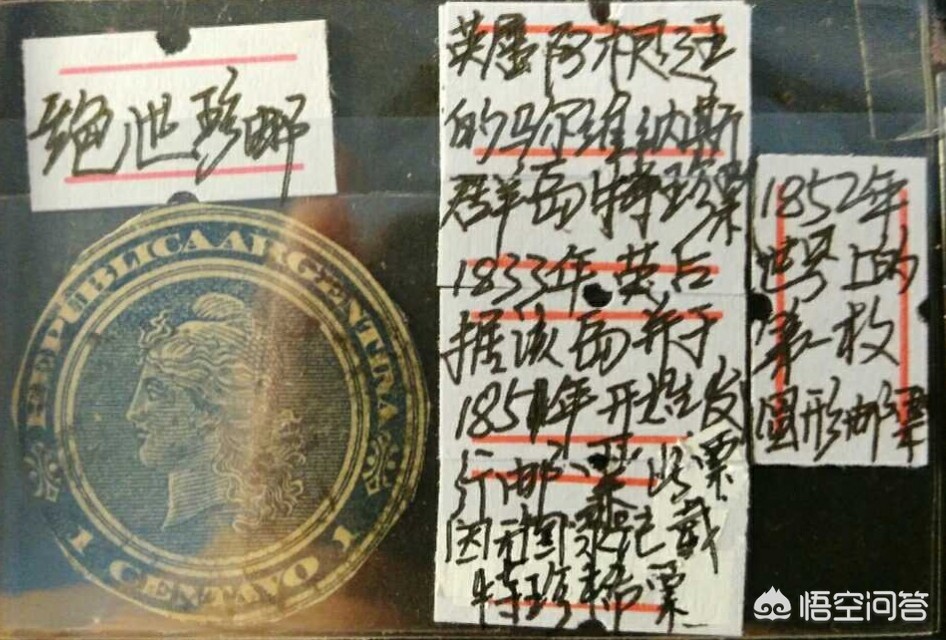 绝世珍邮
REPÚBLICA ARGENTINA
1 CENTAVO 1
英属阿根廷
的马尔维纳斯
群岛特珍票
1833年英占
据该岛并于
1851年开始发
行邮票此票
因未回录记载
特珍稀票
1852年
世界上的
第一枚
圆形邮票
悟空问答